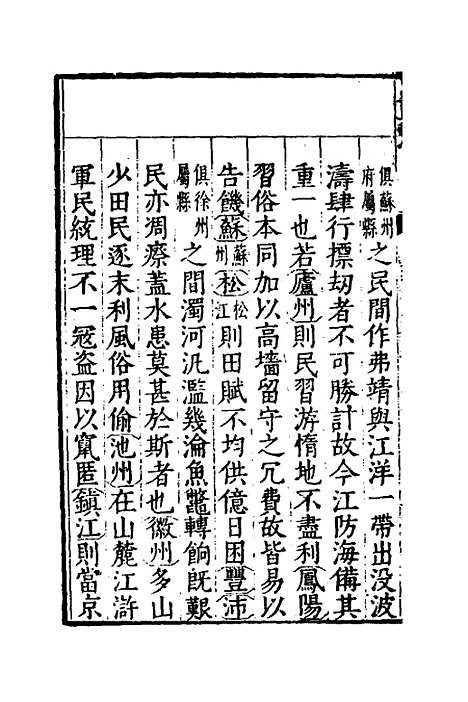 俱蘇州府屬縣之民間作弗靖與江洋一帶出没波
濤肆行摽刼者不可勝計故今江防海備其
重一也若廬州則民習游惰地不盡利鳳陽
習俗本同加以高墻留守之冗費故皆易以
告饑蘇蘇州松松江則田賦不均供億日困豐沛
俱徐州屬縣之間濁河汎濫幾淪魚鼈轉餉既艱
民亦凋瘵蓋水患莫甚於斯者也徽州多山
少田民逐末利風俗用偷池州在山麓江滸
軍民統理不一冦盗因以竄匿鎮江則當京